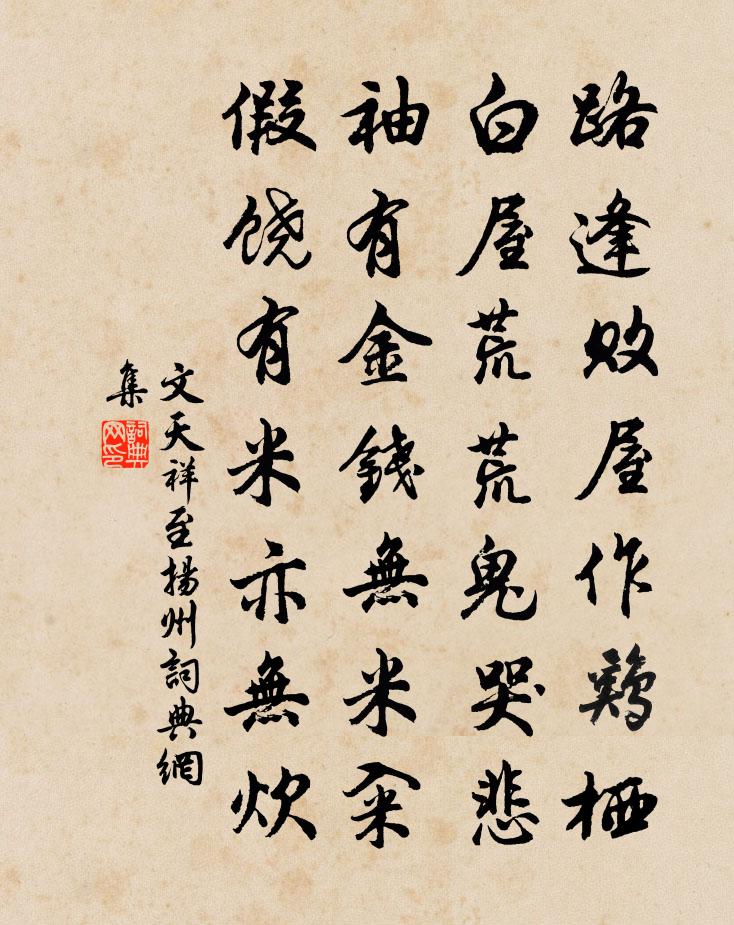 路逢败屋作鷄栖
白屋荒荒鬼哭悲
袖有金錢無米籴
假饶有米亦無炊
文天祥至揚州詞典網
集
詞典
网印